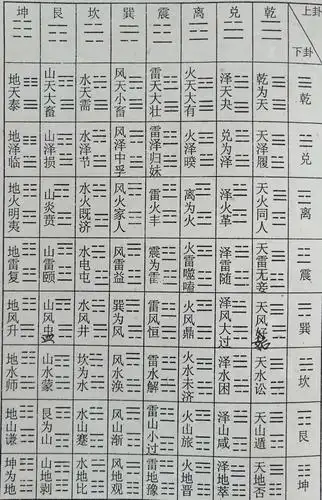 坤 艮 坎 巽 震 离 兑 乾 上卦
下卦
地天泰 山天大畜 水天需 风天小畜 雷天大壮 火天大有 泽天夬 乾为天 乾
地泽临 山泽损 水泽节 风泽中孚 雷泽归妹 火泽睽 兑为泽 天泽履 兑
地火明夷 山炎贲 水火既济 风火家人 雷火丰 离为火 泽火革 天火同人 离
地雷复 山雷颐 水雷屯 风雷益 震为雷 火雷噬嗑 泽雷随 天雷无妄 震
地风升 山风蛊 水风井 巽为风 雷风恒 火风鼎 泽风大过 天风姤 巽
地水师 山水蒙 坎为水 风水涣 雷水解 火水未济 泽水困 天水讼 坎
地山谦 艮为山 水山蹇 风山渐 雷山小过 火山旅 泽山咸 天山遁 艮
坤为地 山地剥 水地比 风地观 雷地豫 火地晋 泽地萃 天地否 坤